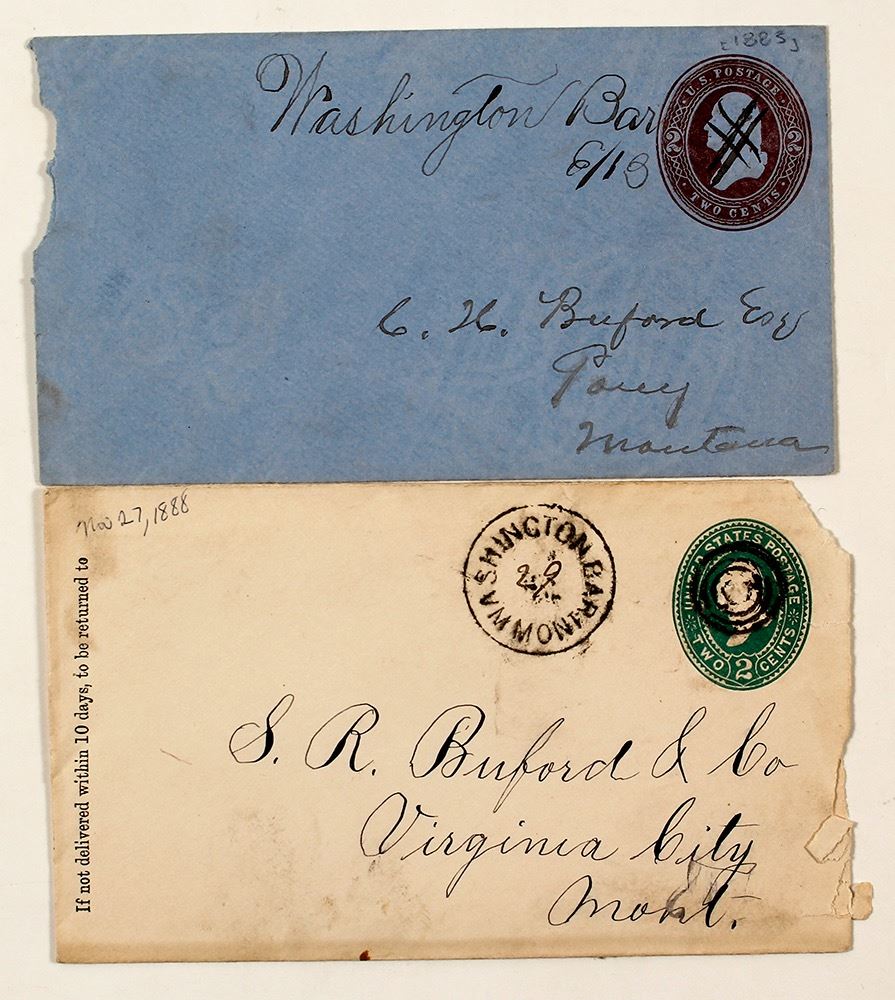 [1883]
Washington Bar
6/13
U.S. POSTAGE
2 2
TWO CENTS
C. H. Buford Esq
Pony
Montana
Nov 27, 1888
If not delivered within 10 days, to be returned to
WASHINGTON BAR
29
MONT
UNITED STATES POSTAGE
TWO 2 CENTS
S. R. Buford & Co
Virginia City
Mont.